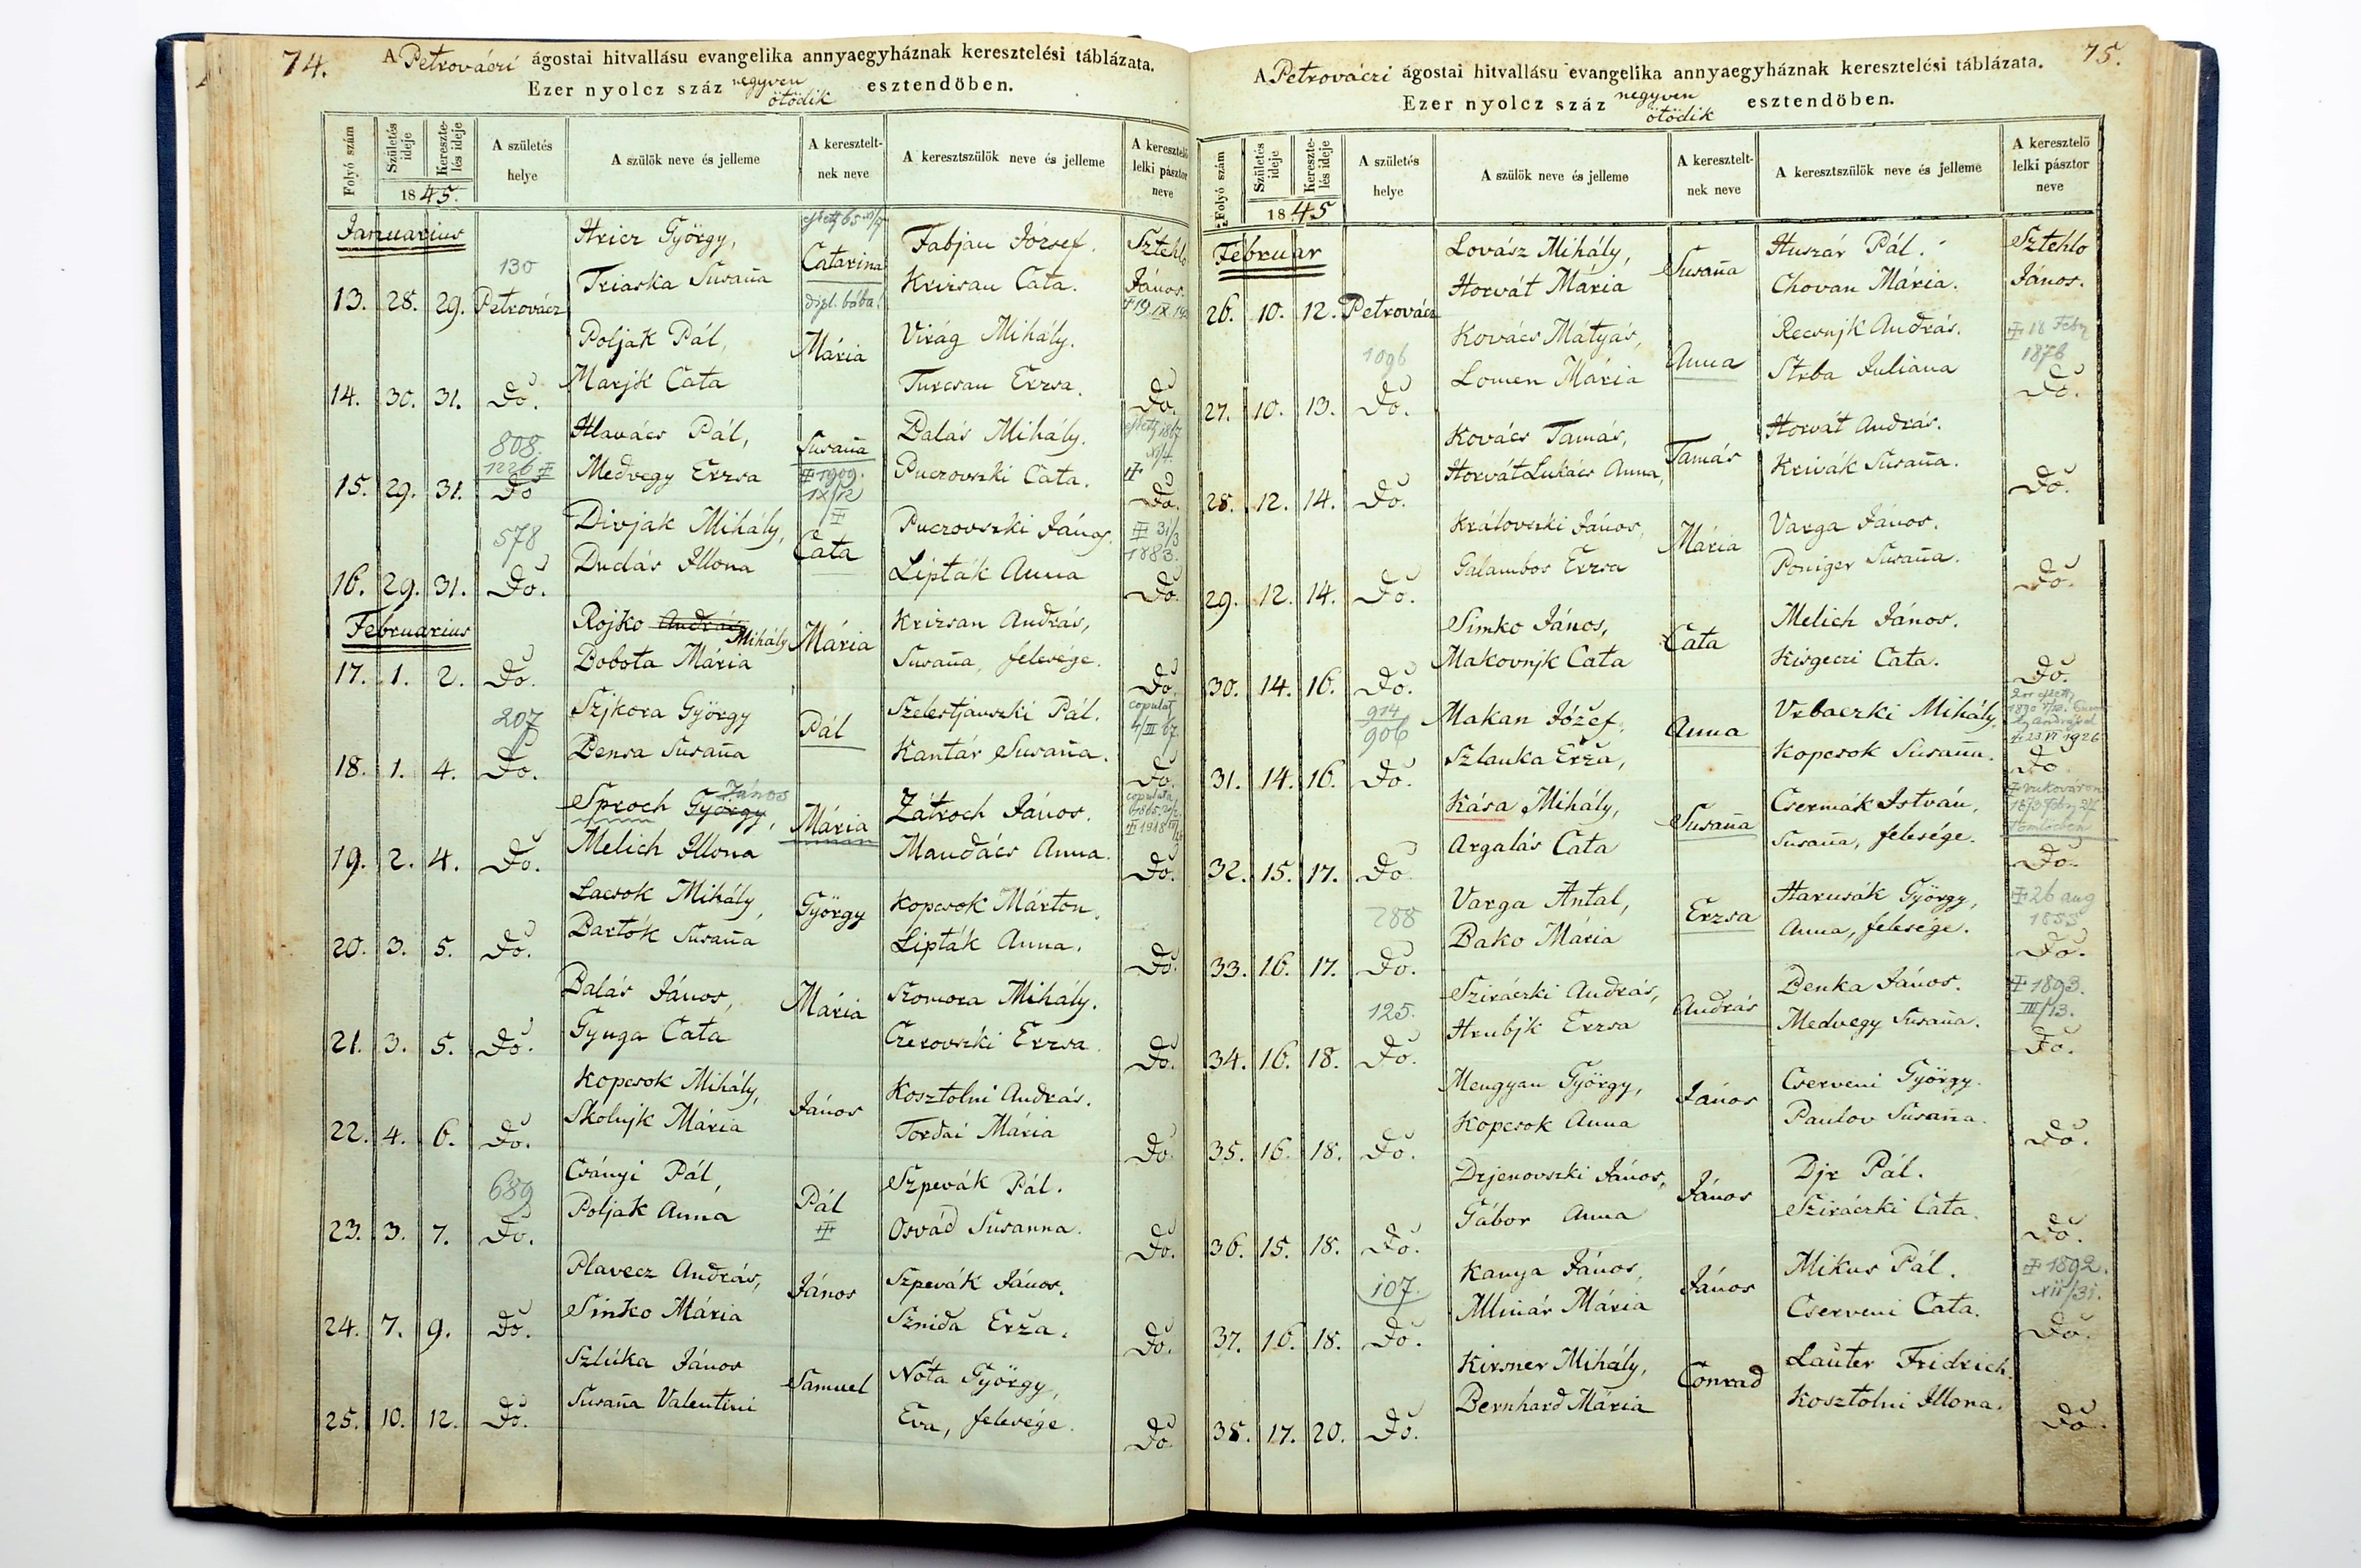 74.
A Petrováczi ágostai hitvallásu evangelika annyaegyháznak keresztelési táblázata.
Ezer nyolcz száz negyven ötödik esztendöben.
Folyó szám
Születés ideje
Keresztelés ideje
1845.
A születés helye
A szülök neve és jelleme
A keresztelt-nek neve
A keresztszülök neve és jelleme
A keresztelö lelki pásztor neve
Januarius
13. 28. 29. 130 Petrovácz
Hricz György,
Triaska Susaña
Catarina
dipl. bába
Fabjan József.
Krizsan Cata.
Sztehlo János.
14. 30. 31. Do.
Poljak Pál,
Marjk Cata
Mária
Virág Mihály.
Turcsan Erzsa.
Do.
15. 29. 31. 808. 1226 Do
Hlavács Pál,
Medvegy Erzsa
Susaña
1909. IX/12
Balás Mihály.
Puczovszki Cata.
Do.
16. 29. 31. 578 Do.
Divjak Mihály,
Dudás Illona
Cata
Puczovszki János.
Lipták Anna
31/3 1883.
Do.
Februarius
17. 1. 2. Do.
Rojko András Mihály
Bobota Mária
Mária
Krizsan András,
Susaña, felesége.
Do.
18. 1. 4. 207 Do.
Szjkora György
Bensa Susaña
Pál
Szelestjanszki Pál.
Kantár Susaña.
copulat 4/III 67.
Do.
19. 2. 4. Do.
Sproch György, János
Melich Illona
Mária
Zátroch János.
Mandács Anna.
copulata
Do.
20. 3. 5. Do.
Lacsok Mihály,
Bartók Susaña
György
Kopcsok Márton.
Lipták Anna.
Do.
21. 3. 5. Do.
Balás János,
Gyuga Cata
Mária
Szomora Mihály.
Czerovszki Erzsa.
Do.
22. 4. 6. Do.
Kopcsok Mihály,
Skolnjk Mária
János
Kosztolni András.
Tordai Mária
Do.
23. 3. 7. 689 Do.
Csányi Pál,
Poljak Anna
Pál
Szpevák Pál.
Osvád Susanna.
Do.
24. 7. 9. Do.
Plavecz András,
Sinko Mária
János
Szpevák János.
Sznida Erža.
Do.
25. 10. 12. Do.
Szlúka János
Susaña Valentini
Samuel
Nóta György,
Eva, felesége.
Do.
75.
A Petrováczi ágostai hitvallásu evangelika annyaegyháznak keresztelési táblázata.
Ezer nyolcz száz negyven ötödik esztendöben.
Folyó szám
Születés ideje
Keresztelés ideje
1845
A születés helye
A szülök neve és jelleme
A keresztelt-nek neve
A keresztszülök neve és jelleme
A keresztelö lelki pásztor neve
Februar
26. 10. 12. Petrovácz
Lovász Mihály,
Horvát Mária
Susaña
Huszár Pál.
Chovan Mária.
Sztehlo János.
27. 10. 13. 1096 Do.
Kovács Mátyás,
Lomen Mária
Anna
Recsnjk András.
Strba Juliana
18 Febr 1876
Do.
28. 12. 14. Do.
Kovács Tamás,
Horvát Lukács Anna,
Tamás
Horvát András.
Krivák Susaña.
Do.
29. 12. 14. Do.
Královszki János,
Galambos Erzsa
Mária
Varga János.
Poniger Susaña.
Do.
30. 14. 16. Do.
Simko János,
Makovnjk Cata
Cata
Melich János.
Kisgeczi Cata.
Do.
31. 14. 16. 914 906 Do.
Makan Józef,
Szlanka Erža,
Anna
Vrbaczki Mihály,
Kopcsok Susaña.
23 VI 1926
Do
32. 15. 17. Do.
Kása Mihály,
Argalás Cata
Susaña
Csermák István,
Susaña, felesége.
Do.
33. 16. 17. 288 Do.
Varga Antal,
Bako Mária
Erzsa
Harusák György,
Anna, felesége.
26 aug 1853
Do.
34. 16. 18. 125. Do.
Sziráczki András,
Hrubjk Erzsa
András
Benka János.
Medvegy Susaña.
1893. III/13.
Do.
35. 16. 18. Do.
Mengyan György,
Kopcsok Anna
János
Cserveni György.
Paulov Susaña.
Do.
36. 15. 18. Do.
Drjenovszki János,
Gábor Anna
János
Djr Pál.
Sziráczki Cata.
Do.
37. 16. 18. 107. Do.
Kanya János,
Mlinár Mária
János
Mikus Pál.
Cserveni Cata.
1892. XII/31.
Do.
38. 17. 20. Do.
Kirsner Mihály,
Bernhard Mária
Conrad
Lauter Fridrich.
Kosztolni Illona.
Do.